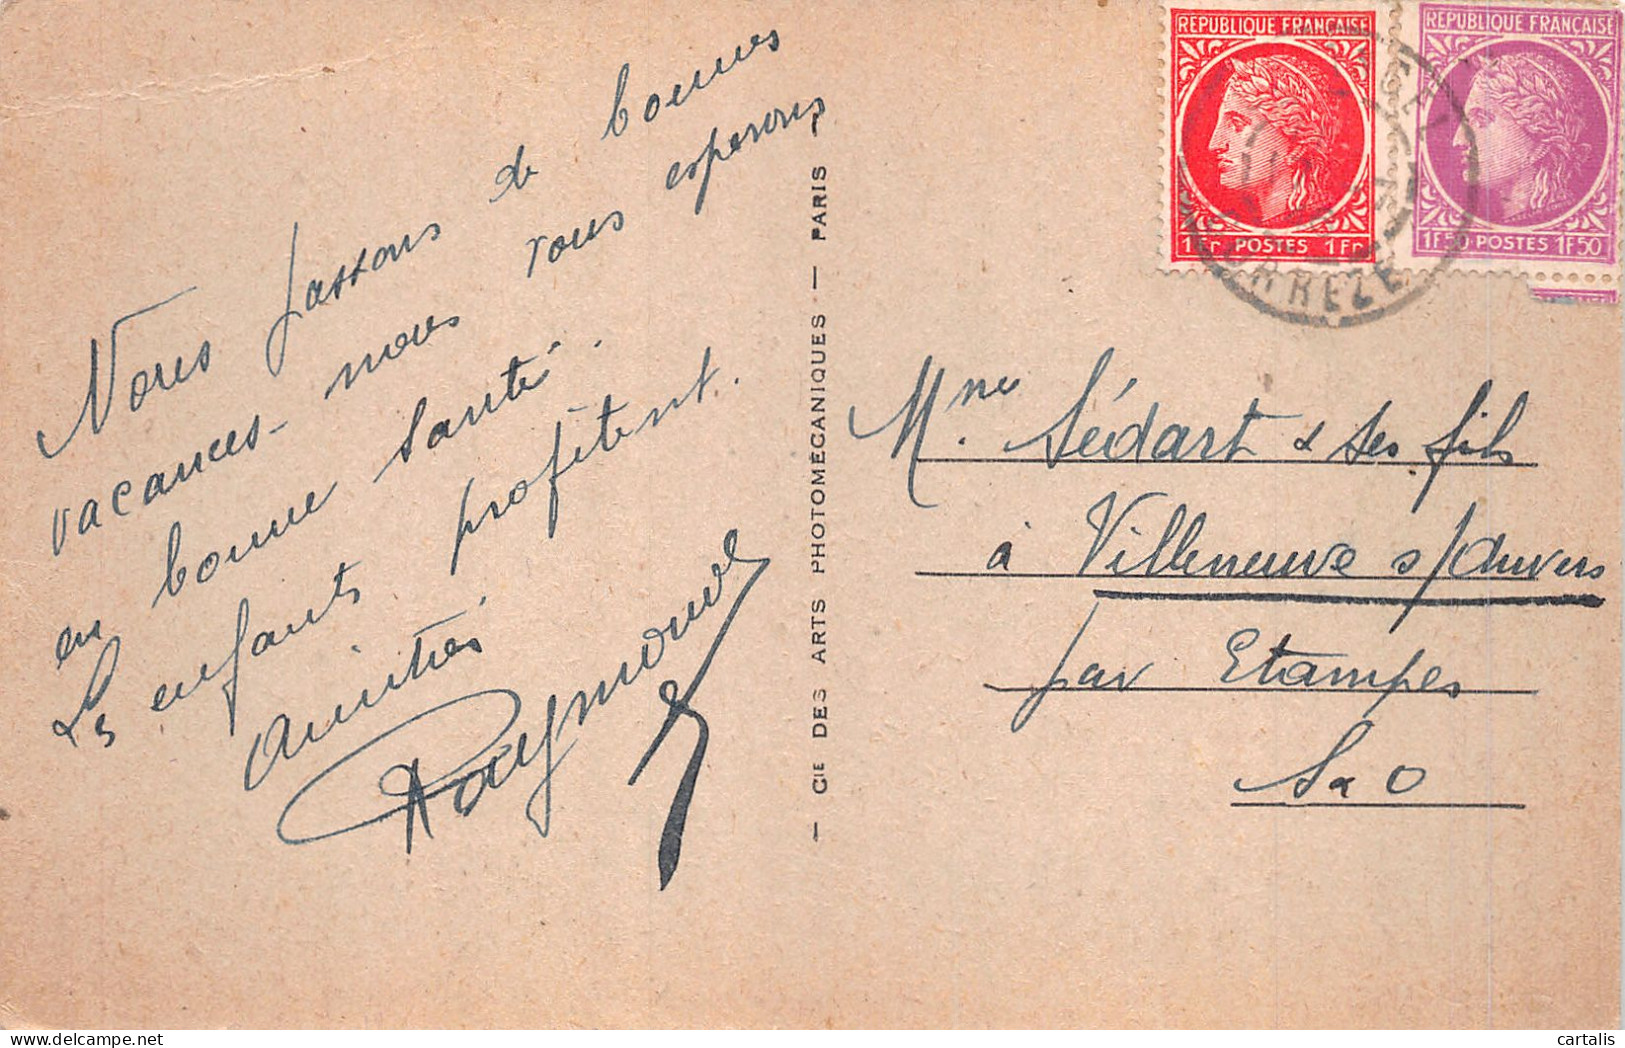 Nous passons de bonnes
vacances - nous vous esperons
en bonne santé.
Les enfants profitent.
Amitiés
Raymond
— CIE DES ARTS PHOTOMÉCANIQUES — PARIS —
RÉPUBLIQUE FRANÇAISE
1 Fr POSTES 1 Fr
RÉPUBLIQUE FRANÇAISE
1F50 POSTES 1F50
CORRÈZE
Mme Sédart & ses fils
à Villeneuve s/ Auvers
par Etampes
S & O
cartalis